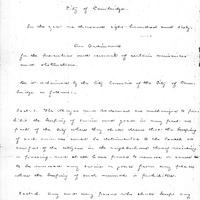 City of Cambridge.
In the year one thousand eight hundred and sixty.
An Ordinance
for the prevention and removal of certain nuisances
and obstructions.
Be it ordained by the City Council of the City of Cam-
bridge as follows:
Sect. 1. The Mayor and Aldermen are authorized to pro-
hibit the keeping of swine and goats in any part or
parts of the city where they shall deem that the keeping
of such animals would be detrimental to the health or
comfort of the citizens in the neighborhood thereof residing
or passing: and at all times to remove or cause
to be removed any swine or goats from any place
where the keeping of such animals is prohibited.
Sect. 2. Any and every person who shall keep any